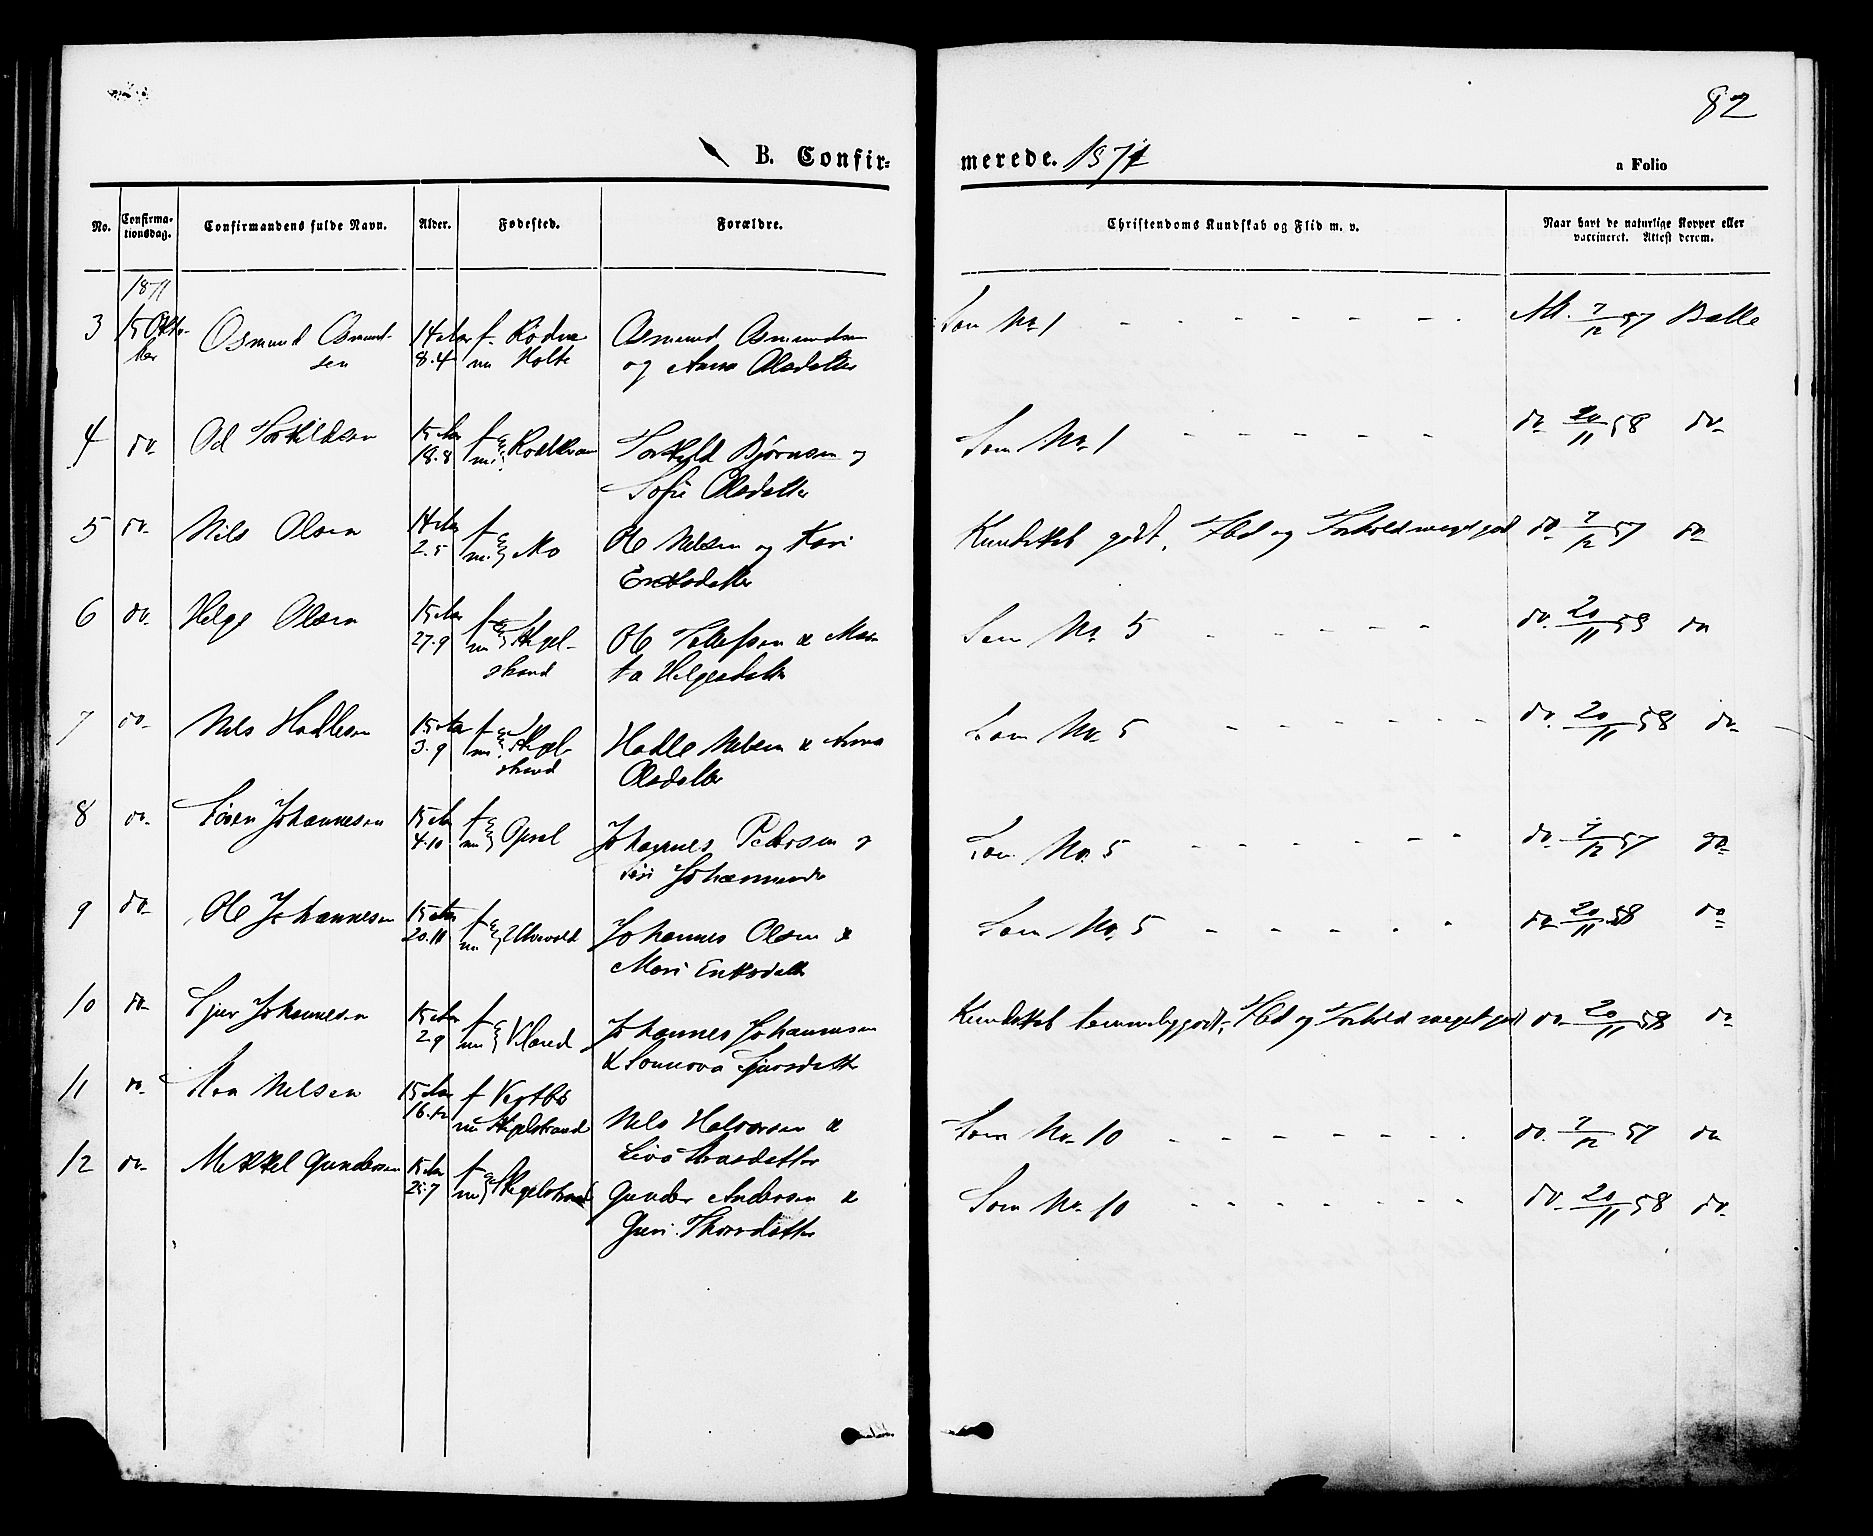 82
B. Confir-
merede. 1871
a Folio
No.
Confirma-
tionsdag.
Confirmandens fulde Navn.
Alder.
Fødested.
Forældre.
Christendoms Kundskab og Flid m. v.
Naar havt de naturlige Kopper eller
vaccineret. Attest derom.
1871
3 15 Okto- Osmund Osmund- 14 Aar f. Osmund Osmundsen Som No 1 - - - - - - - - Att. 7/12 57 Balle
ber sen 8.4 nu Holte og Anna Olsdatter
4 do. Od Torkildsen 15 Aar f. Torkild Bjørnsen og Som No 1 - - - - - - do. 20/11 58 do.
18.8 nu Sofie Olsdatter
5 do. Nils Olsen 14 Aar f. Ole Nilsen og Kari Kundskab godt, Flid og Forhold meget god do. 7/12 57 do.
2.5 nu Mo Eriksdatter
6 do. Helge Olsen 15 Aar f. Ole Tollefsen & Mar- Som No 5 - - - - - do. 20/11 58 do.
27.9 nu Skjel- ta Helgesdatter
strand
7 do. Nils Hadlesen 15 Aar f. Hadle Nilsen & Anna Som No. 5 - - - - - - - do. 20/11 58 do.
3.9 nu Skjel- Olsdatter
strand
8 do. Sören Johannesen 15 Aar f. Johannes Pedersen og Som No. 5 - - - - - - - do. 7/12 57 do.
4.10 nu Opsal Siri
9 do. Ole Johannesen 15 Aar f. Johannes Olsen & Som No. 5 - - - - - - do. 20/11 58 do.
20.11 nu Mari Eriksdatter
10 do. Sjur Johannesen 15 Aar f. Johannes Johannesen Kundskab temmelig godt, Flid og Forhold meget god do. 20/11 58 do.
2.9 nu & Sunneva Sjursdatter
11 do. Nilsen 15 Aar f Vestbø Nils Halvorsen & Som No. 10 - - - - - - - - do. 7/12 57 do.
16.12 nu Skjelstrand Siva
12 do. Mikkel Gundersen 15 Aar f. Gunder Andersen & Som No. 10 - - - - - - - do. 20/11 58 do.
25.7 nu Skjelstrand Guri Thorsdatter